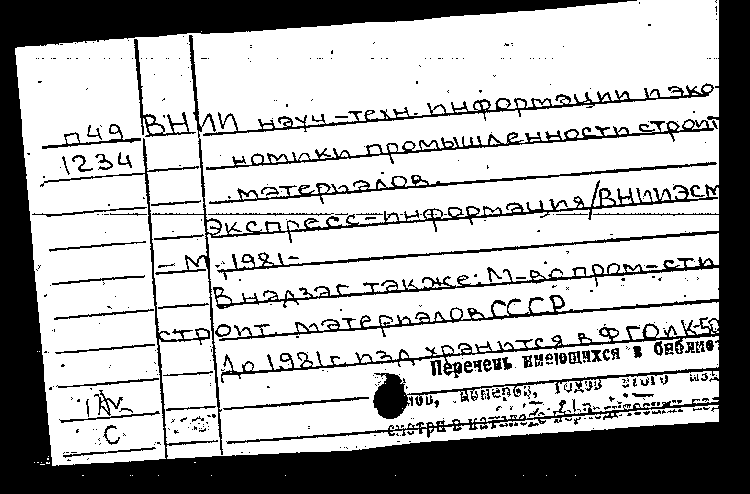 п49 ВНИИ науч-техн. информации и эко-
1234 номики промышленности строит
материалов.
Экспресс-информация/ВНИИЭСМ
- М., 1981-
В надзаг также: М-во пром-сти
строит. материалов СССР.
До 1981 г. изд. хранится в ФГО и К-50
Перечень имеющихся в библио
мов, номеров, годов этого изд
С смотри в каталоге периодических